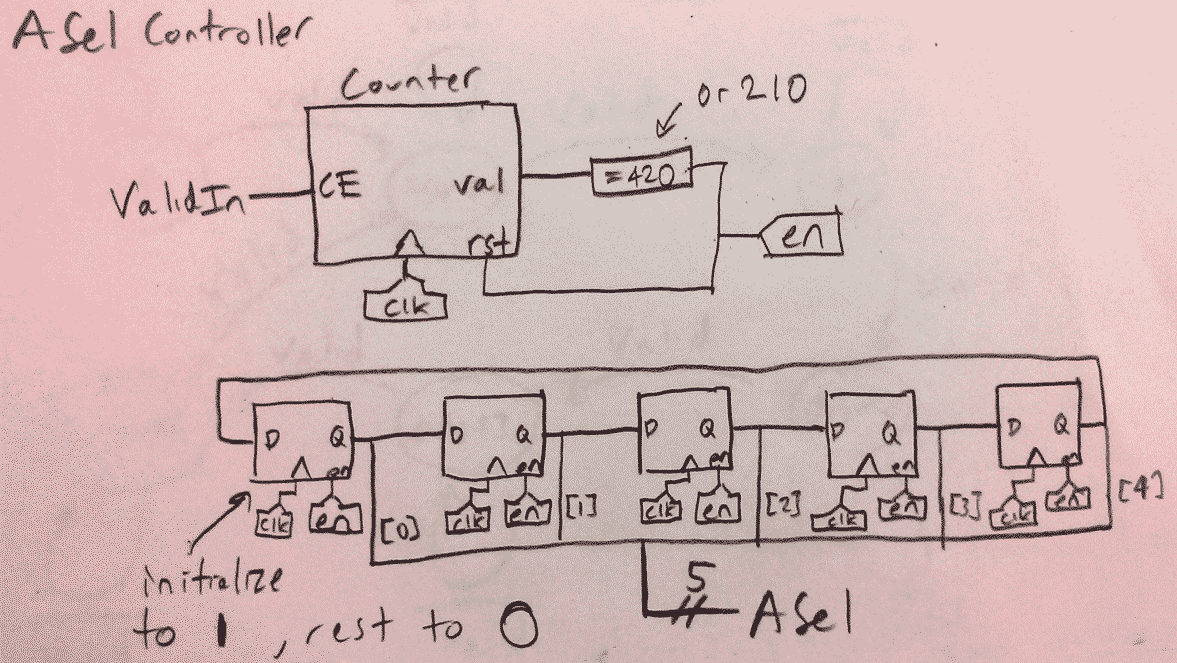 ASel Controller
Counter
or 210
ValidIn
CE
val
=420
rst
en
clk
D Q D Q D Q D Q D Q
en en en en en
clk en [0] clk en [1] clk en [2] clk en [3] clk en [4]
initialize
to 1, rest to 0
5
ASel